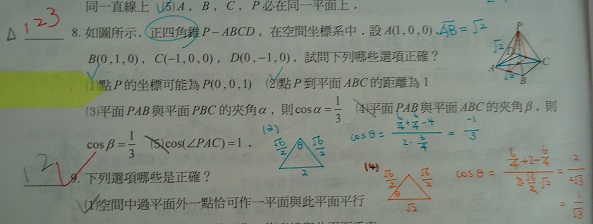 同一直線上 (5) A，B，C，P 必在同一平面上．
△ 123
8. 如圖所示，正四角錐 P－ABCD，在空間坐標系中．設 A(1,0,0)，AB=√2
B(0,1,0)，C(−1,0,0)，D(0,−1,0)，試問下列哪些選項正確？
(1)點 P 的坐標可能為 P(0,0,1) (2)點 P 到平面 ABC 的距離為 1
(3)平面 PAB 與平面 PBC 的夾角 α，則 cos α = 1/3 (4)平面 PAB 與平面 ABC 的夾角 β，則
cos β = 1/3 (5) cos(∠PAC) = 1．
P
A
B
C
D
√2
(3)
√6/2
√6/2
θ
2
cosθ = (6/4 + 6/4 − 4)/(2·6/4) = −1/3
(4)
√6/2
√6/2
θ
√2
cosθ = (6/4 + 2 − 6/4)/(2·√6/2·√2) = 2/(2√3)
= 1/√3
12
9. 下列選項哪些是正確？
(1)空間中過平面外一點恰可作一平面與此平面平行